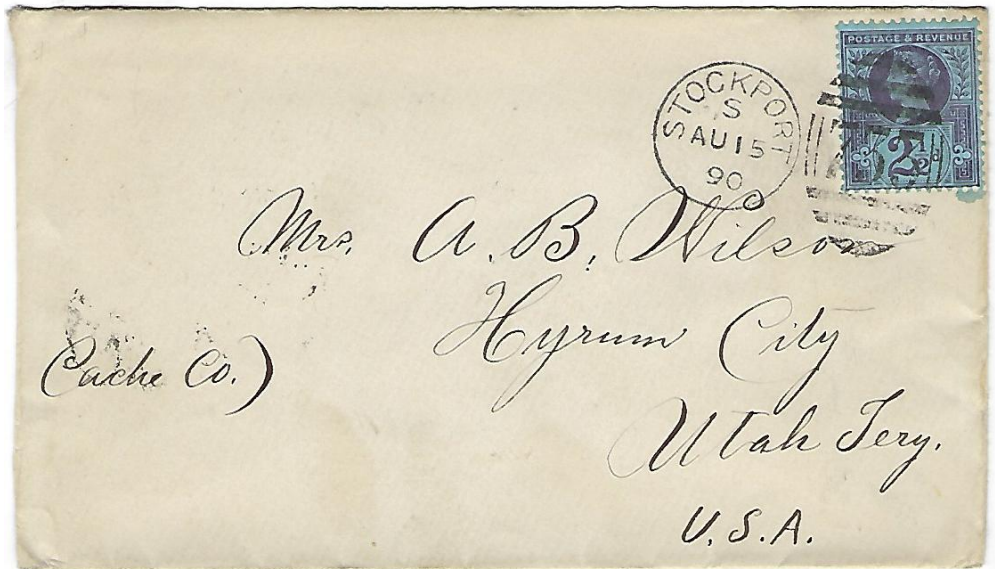 POSTAGE & REVENUE
2½d
STOCKPORT
S
AU 15
90
Mrs. A. B. Wilson
Hyrum City
(Cache Co.)
Utah Tery.
U.S.A.